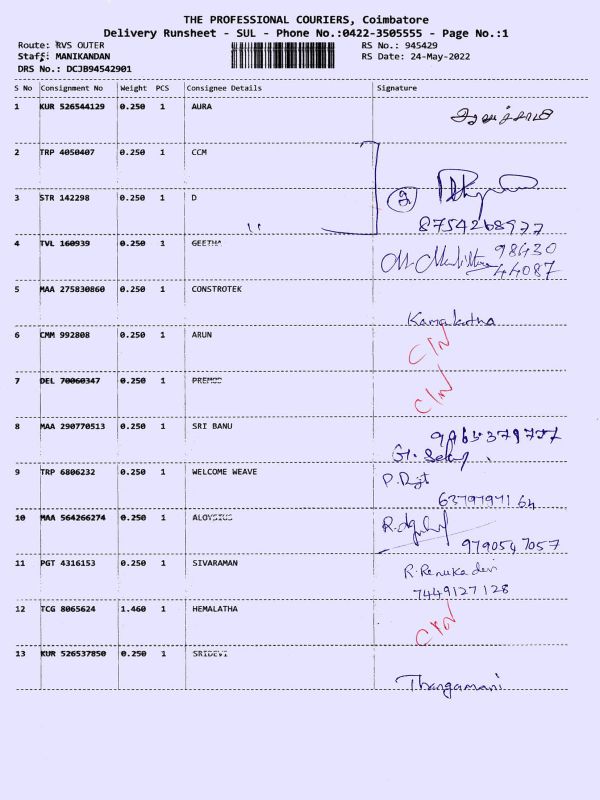 THE PROFESSIONAL COURIERS, Coimbatore
Delivery Runsheet - SUL - Phone No.:0422-3505555 - Page No.:1
Route: RVS OUTER RS No.: 945429
Staff: MANIKANDAN RS Date: 24-May-2022
DRS No.: DCJB94542901
S No Consignment No Weight PCS Consignee Details Signature
1 KUR 526544129 0.250 1 AURA
2 TRP 4050407 0.250 1 CCM
3 STR 142298 0.250 1 D
2
8754268977
4 TVL 160939 0.250 1 GEETHA
98430
44087
5 MAA 275830860 0.250 1 CONSTROTEK
6 CMM 992808 0.250 1 ARUN
C/N
7 DEL 70060347 0.250 1 PREMOD
C/N
8 MAA 290770513 0.250 1 SRI BANU
9 TRP 6806232 0.250 1 WELCOME WEAVE
10 MAA 564266274 0.250 1 ALOYSIUS
9790547057
11 PGT 4316153 0.250 1 SIVARAMAN
R. Renuka devi
7449127128
12 TCG 8065624 1.460 1 HEMALATHA
C/N
13 KUR 526537850 0.250 1 SRIDEVI
Thangamani